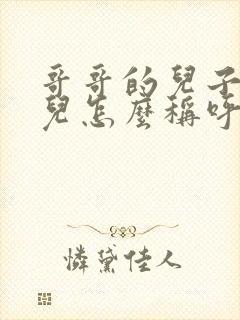 哥哥的兒子
兒怎麼稱呼
憐黛佳人